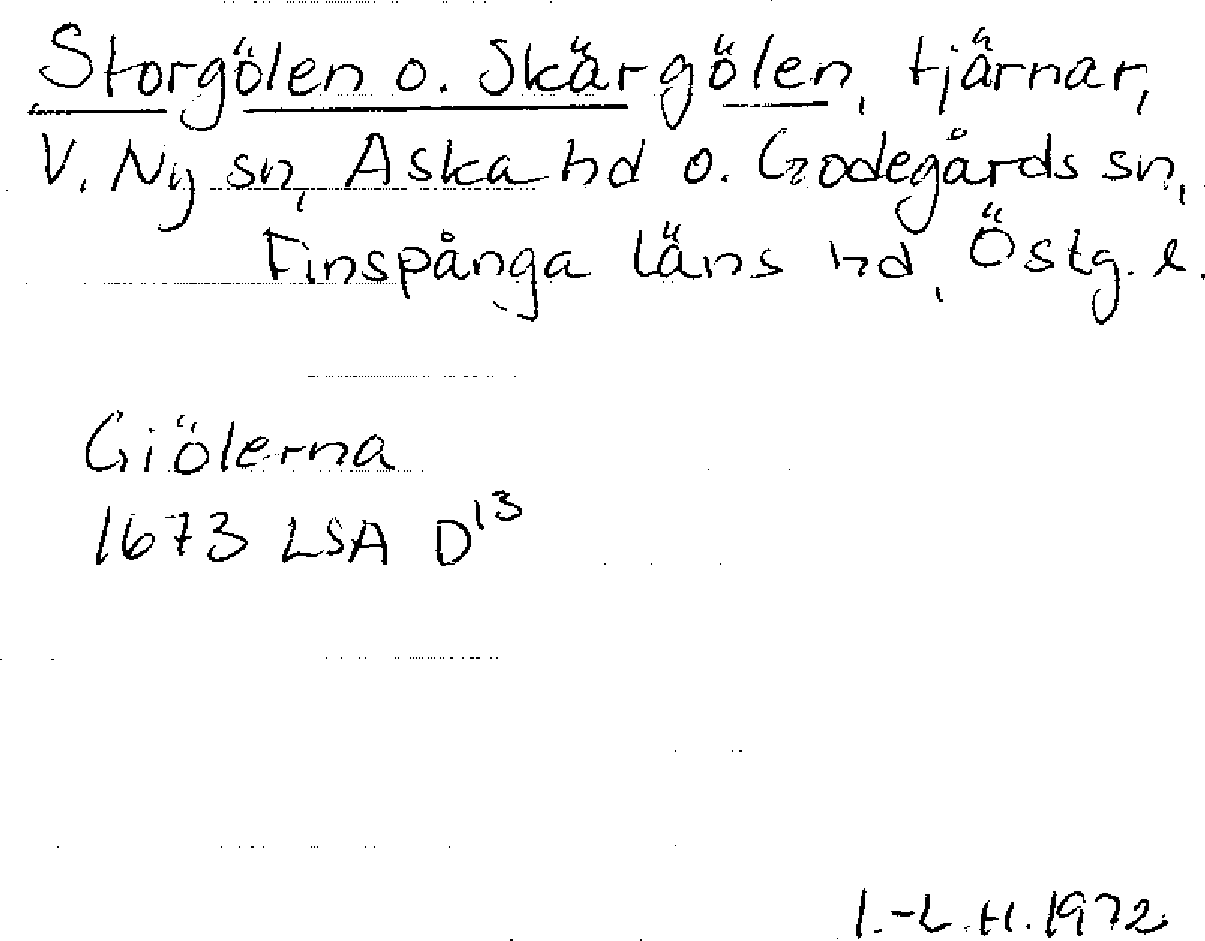 Storgölen o. Skärgölen, tjärnar,
V. Ny sn, Aska hd o. Godegårds sn,
Finspånga läns hd, Östg. l.
Giölerna
1673 LSA D13
I.-L.H. 1972